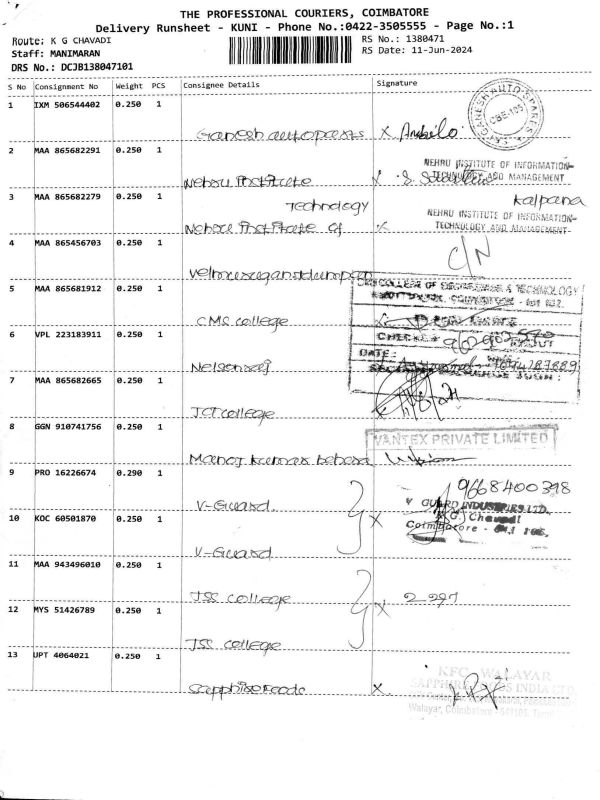 THE PROFESSIONAL COURIERS, COIMBATORE
Delivery Runsheet - KUNI - Phone No.:0422-3505555 - Page No.:1
Route: K G CHAVADI
RS No.: 1380471
Staff: MANIMARAN
RS Date: 11-Jun-2024
DRS No.: DCJB138047101
S No Consignment No Weight PCS Consignee Details Signature
1 IXM 506544402 0.250 1
Ganesh autoparts X
GANESH AUTO SPARES
CBE-105
2 MAA 865682291 0.250 1
NEHRU INSTITUTE OF INFORMATION
TECHNOLOGY AND MANAGEMENT
Nehru Institute X
3 MAA 865682279 0.250 1
Kalpana
Technology
NEHRU INSTITUTE OF INFORMATION
TECHNOLOGY AND MANAGEMENT
Nehru Institute of X
4 MAA 865456703 0.250 1
C/N
5 MAA 865681912 0.250 1
COLLEGE OF ENGINEERING & TECHNOLOGY
CMS college
6 VPL 223183911 0.250 1
DATE:
Nelsonraj
7 MAA 865682665 0.250 1
JCT college
8 GGN 910741756 0.250 1
VANTEX PRIVATE LIMITED
Manoj kumar behera
9 PRO 16226674 0.290 1
9668400398
V-Guard
V GUARD INDUSTRIES LTD.
K.G. Chavadi
Coimbatore - 641 105.
10 KOC 60501870 0.250 1
X
V-Guard
11 MAA 943496010 0.250 1
JSS college
12 MYS 51426789 0.250 1
X
JSS college
13 UPT 4064021 0.250 1
KFC - WALAYAR
SAPPHIRE FOODS INDIA LTD
Sapphirefoods X
Walayar, Coimbatore - 641105,